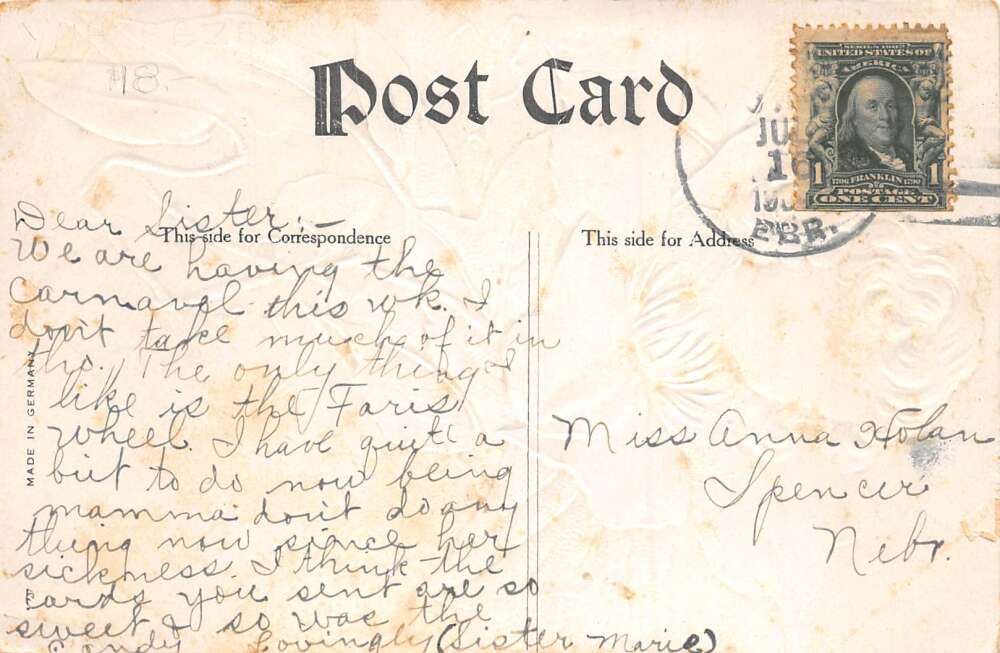 #18
Post Card
SERIES 1902
UNITED STATES OF
AMERICA
1 1706 FRANKLIN 1790 1
POSTAGE
ONE CENT
JU
16
190
EBR.
This side for Correspondence
This side for Address
Dear Sister:-
We are having the
Carnavel this wk. I
don't take much of it in
tho. The only thing I
like is the Faris
Wheel. I have quite a
bit to do now being
mamma don't do any
thing now since her
sickness. I think the
cards you sent are so
sweet & so was the
Candy Lovingly (Sister Marie)
Miss Anna Holan
Spencer
Nebr.
MADE IN GERMANY